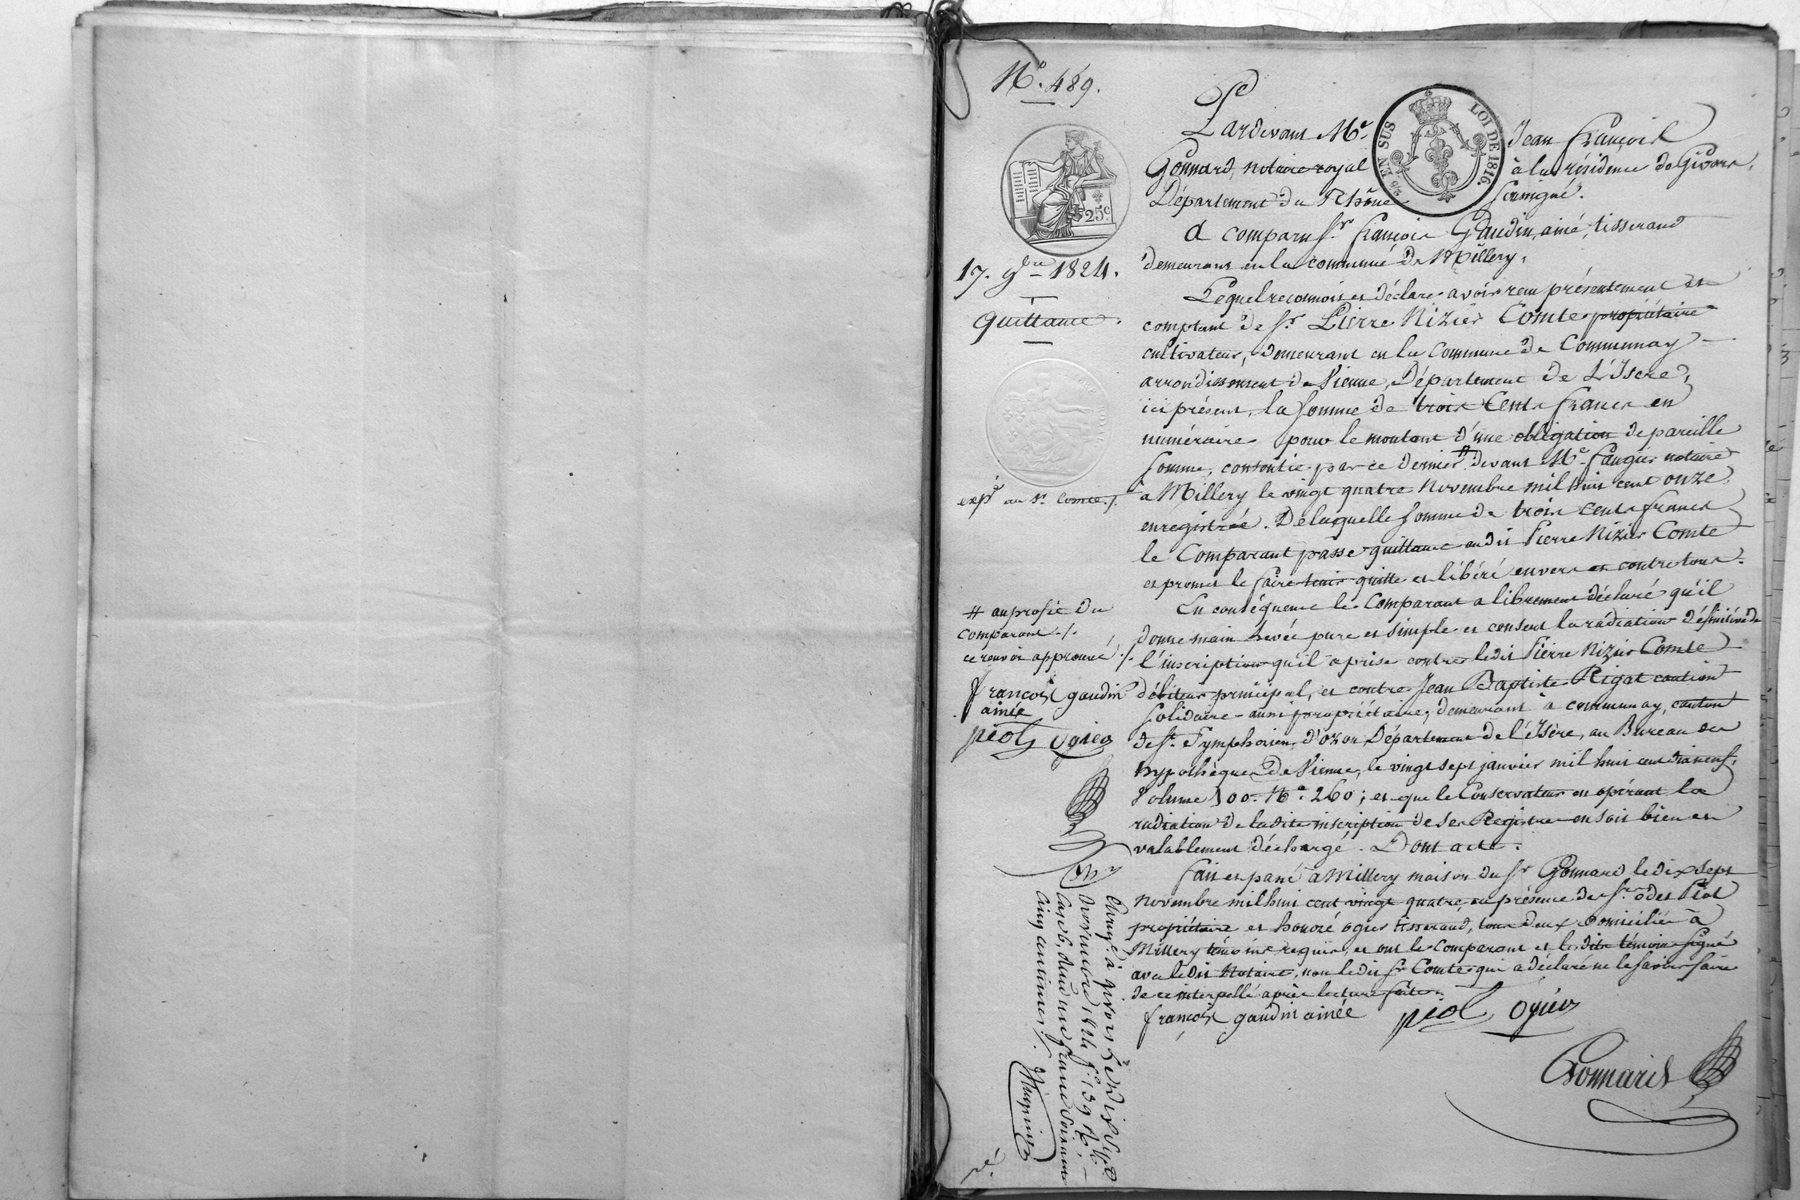 N.° 489.
Pardevant M.e Jean François
Gonnard, notaire royal à la résidence de Givors,
Département du Rhône soussigné.
EN SUS
LOI DE 1816.
25c
17. 9bre 1824.
Quittance.
expé. au Sr. Comte ./.
A comparu Sr. François Gaudin, ainé, tisserand
demeurant en la commune de Millery,
Lequel reconnoit et déclare avoir reçu présentement et
comptant de Sr. Pierre Nizier Comte propriétaire
cultivateur, demeurant en la Commune de Communay
arrondissement de Vienne, Département de L'Isère,
ici présent, la somme de trois Cents francs en
numéraire pour le montant d'une obligation de pareille
somme, consentie par ce dernier # devant Me. Fauquier notaire
à Millery le vingt quatre Novembre mil huit cent onze,
enregistrée. De laquelle somme de trois cents francs
le Comparant passe quittance audit Pierre Nizier Comte
et promet le faire tenir quitte et libéré envers et contre tous.
En conséquence le Comparant a librement déclaré qu'il
donne main levée pure et simple et consent la radiation définitive de
l'inscription qu'il a prise contre ledit Pierre Nizier Comte
débiteur principal, et contre Jean Baptiste Rigat caution
solidaire aussi propriétaire, demeurant à communay, canton
de St. Symphorien d'ozon Département de l'isère, au Bureau des
hypothèques de Vienne, le vingt sept janvier mil huit cent dix neuf,
Volume 100. N.° 260; et que le Conservateur en opérant la
radiation de ladite inscription de ses Registres en soit bien et
valablement déchargé. Dont acte.
Fait et passé à Millery maison du Sr. Gonnard le dix sept
Novembre mil huit cent vingt quatre, en présence de Srs. odet Piol
propriétaire et honoré ogier tisserand, tous deux domiciliés à
Millery témoins requis, et ont le Comparant et lesdits témoins signé
avec ledit Notaire, non ledit Sr. Comte qui a déclaré ne le savoir faire
de ce interpellé après lecture faite.
françois gaudin ainée piol ogier
Gonnard
# au profit du
comparant ./.
ce renvoi approuvé ./.
françois gaudin
ainée
piol ogier
Enregé. à givors le dix Sept
Novembre 1824 f.° 139 R.°
Case 6, deux francs Soixante
Cinq centimes ./.